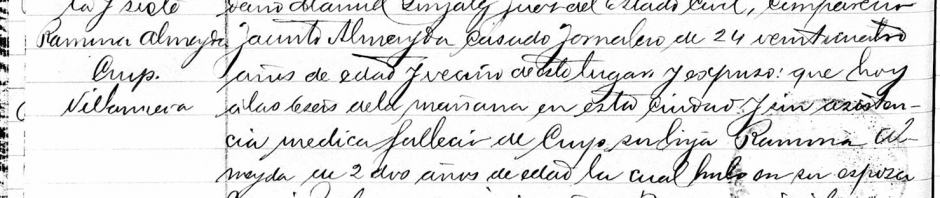 ta y siete
dano Manuel González Juez del Estado Civil, compareció
Ramona Almeyda
Jacinto Almeyda casado Jornalero de 24 veinticuatro
Crup.
años de edad y vecino de este lugar y expuso: que hoy
Villanueva
a las 6 seis de la mañana en esta ciudad y sin asisten-
cia medica falleció de Crup su hija Ramona Al-
meyda de 2 dos años de edad la cual hubo en su esposa